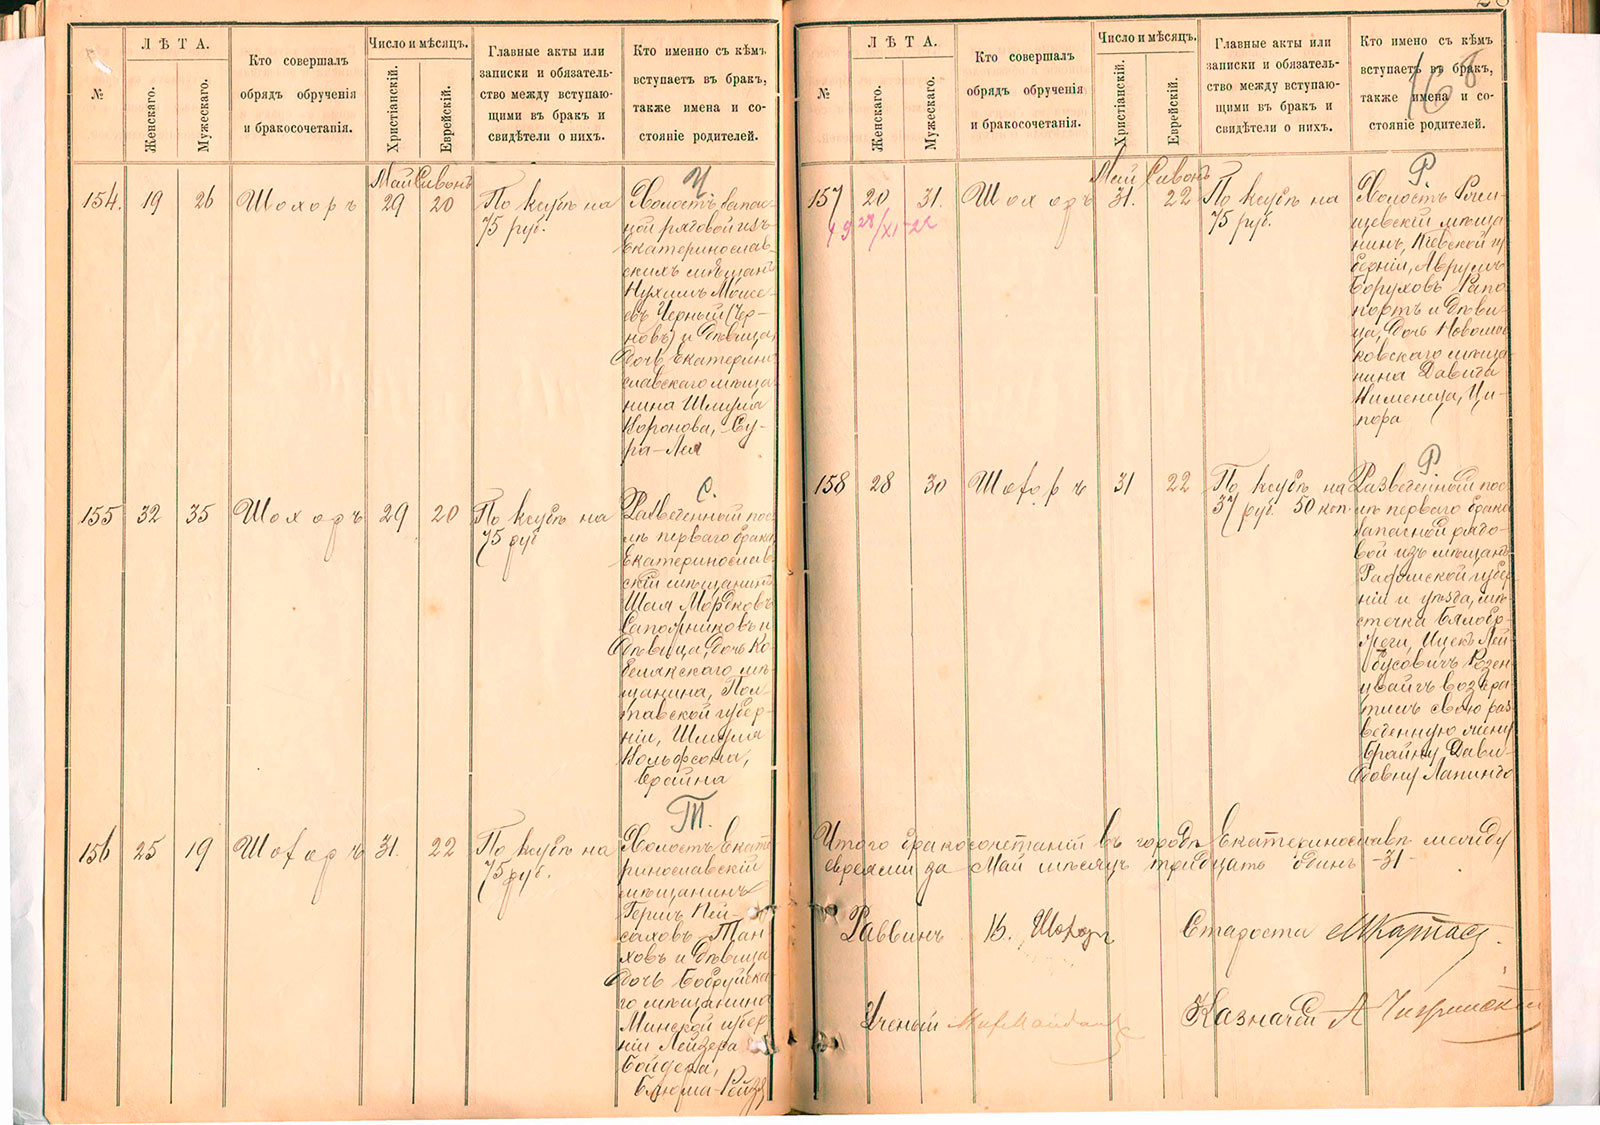 №
ЛѢТА.
Женскаго.
Мужескаго.
Кто совершалъ
обрядъ обрученія
и бракосочетанія.
Число и мѣсяцъ.
Христіанскій.
Еврейскій.
Главные акты или
записки и обязатель-
ство между вступаю-
щими въ бракъ и
свидѣтели о нихъ.
Кто именно съ кѣмъ
вступаетъ въ бракъ,
также имена и со-
стояніе родителей.
Ч.
Май Сивонъ
154. 19 26 Шохоръ 29 20 По ксубѣ на
75 руб.
Холостъ запас-
ной рядовой изъ
Екатеринослав-
скихъ мѣщанъ
Нухимъ Моисе-
евъ Черный (Чер-
новъ) и дѣвица,
дочь Екатерино-
славскаго мѣща-
нина Шмуля
Воронова, Су-
ра-Лея
С.
155 32 35 Шохоръ 29 20 По ксубѣ на
75 руб
Разведенный пос-
лѣ перваго брака
Екатеринослав-
скій мѣщанинъ
Шая Мордковъ
Сапожниковъ и
дѣвица, дочь Ко-
белякскаго мѣ-
щанина, Пол-
тавской губер-
ніи, Шмуля
Вольфсона,
Брайна
Т.
156 25 19 Шохоръ 31. 22 По ксубѣ на
75 руб.
Холостъ Екате-
ринославскій
мѣщанинъ
Гершъ Пей-
саховъ Тан-
ховъ и дѣвица
дочь Бобруйска-
го мѣщанина
Минской губер-
ніи Лейзера
Бойдера,
Блюма-Рейзя
168
№
ЛѢТА.
Женскаго.
Мужескаго.
Кто совершалъ
обрядъ обрученія
и бракосочетанія.
Число и мѣсяцъ.
Христіанскій.
Еврейскій.
Главные акты или
записки и обязатель-
ство между вступаю-
щими въ бракъ и
свидѣтели о нихъ.
Кто имено съ кѣмъ
вступаетъ въ бракъ,
также имена и со-
стояніе родителей.
Р.
Май Сивонъ
157 20 31. Шохоръ 31. 22 По ксубѣ на
75 руб.
28/XI-22
Холостъ
мѣща-
нинъ, Кіевской гу-
берніи, Аврумъ
Боруховъ Рапо-
портъ и дѣви-
ца, дочь Новомос-
ковскаго мѣща-
нина Давида
Нименеца, Ци-
пора
Р.
158 28 30 Шохоръ 31 22 По ксубѣ на
37 руб. 50 коп
Разведенный пос-
лѣ перваго брака
запасной рядо-
вой изъ мѣщанъ
Радомской губер-
ніи и уѣзда, мѣ-
стечка Бялобр-
жеги, Ицекъ Лей-
бусовичъ Розен-
цвайгъ возвра-
тилъ свою раз-
веденную жену
Брайну Дави-
довну Лапинго
Итого бракосочетаній въ городѣ Екатеринославѣ между
евреями за Май мѣсяцъ тридцать одинъ -31-
Раввинъ В. Шохоръ Староста М Карпасъ.
Ученый Казначей А Чигринскій